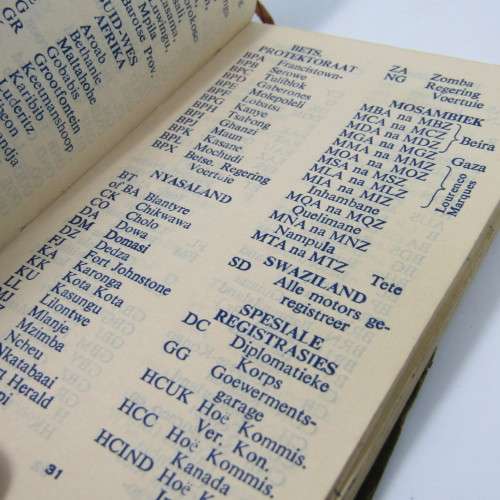 GR
Mpise
Barotse Prov.
SUID-WES
AFRIKA
Aroab
Bethanie
Maltahohe
Gobabis
Grootfontein
Keetmanshoop
Karibib
BETS.
PROTEKTORAAT
BPA Francistown-
Serowe
BPB Tuliblok
BPC Gaberones
BPD Molepoleli
BPE Lobatsi
BPF Kanye
BPG Tsalong
BPH Ghanzi
BPI Maun
BPK Kasane
BPL Mochudi
Betse. Regering
Voertuie
NYASALAND
BT
of BA Blantyre
CK Chikwawa
CO Cholo
DA Dowa
DM Domasi
DZ Dedza
FJ Fort Johnstone
KA Kota Kota
KK Karonga
KU Kasungu
LL Lilontwe
Mlanje
Mzimba
Ncheu
Nkatabaai
Port Herald
31
ZA Zomba
NG Regering
Voertuie
MOSAMBIEK
MBA na MBZ
MCA na MCZ
MDA na MDZ
Beira
MGA na MGZ
Gaza
MMA na MMZ
MOA na MOZ
MSA na MSZ
MLA na MLZ
Lourenco
Marques
MIA na MIZ
Inhambane
MQA na MQZ
Quelimane
MNA na MNZ
Nampula
MTA na MTZ Tete
SWAZILAND
SD Alle motors ge-
registreer
SPESIALE
REGISTRASIES
DC Diplomatieke
Korps
GG Goewerments-
garage
HCUK Hoë Kommis.
Ver. Kon.
HCC Hoë Kommis.
Kanada
HCIND Hoë Kommis.